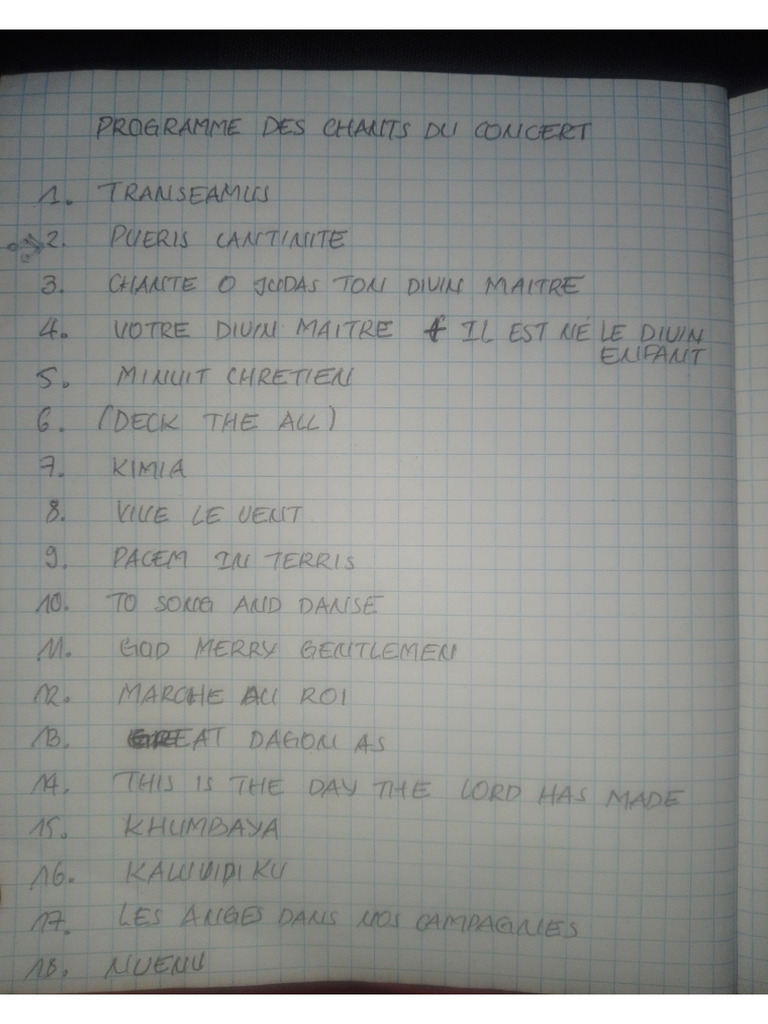 PROGRAMME DES CHANTS DU CONCERT
1. TRANSEAMUS
2. PUERIS CANTINITE
3. CHANTE O JUDAS TON DIVIN MAITRE
4. VOTRE DIVIN MAITRE + IL EST NÉ LE DIVIN
ENFANT
5. MINUIT CHRETIEN
6. (DECK THE ALL)
7. KIMIA
8. VIVE LE VENT
9. PACEM IN TERRIS
10. TO SONG AND DANSE
11. GOD MERRY GENTLEMEN
12. MARCHE AU ROI
13. GREAT DAGON AS
14. THIS IS THE DAY THE LORD HAS MADE
15. KHUMBAYA
16. KALUVIDI KU
17. LES ANGES DANS NOS CAMPAGNES
18. NUENU